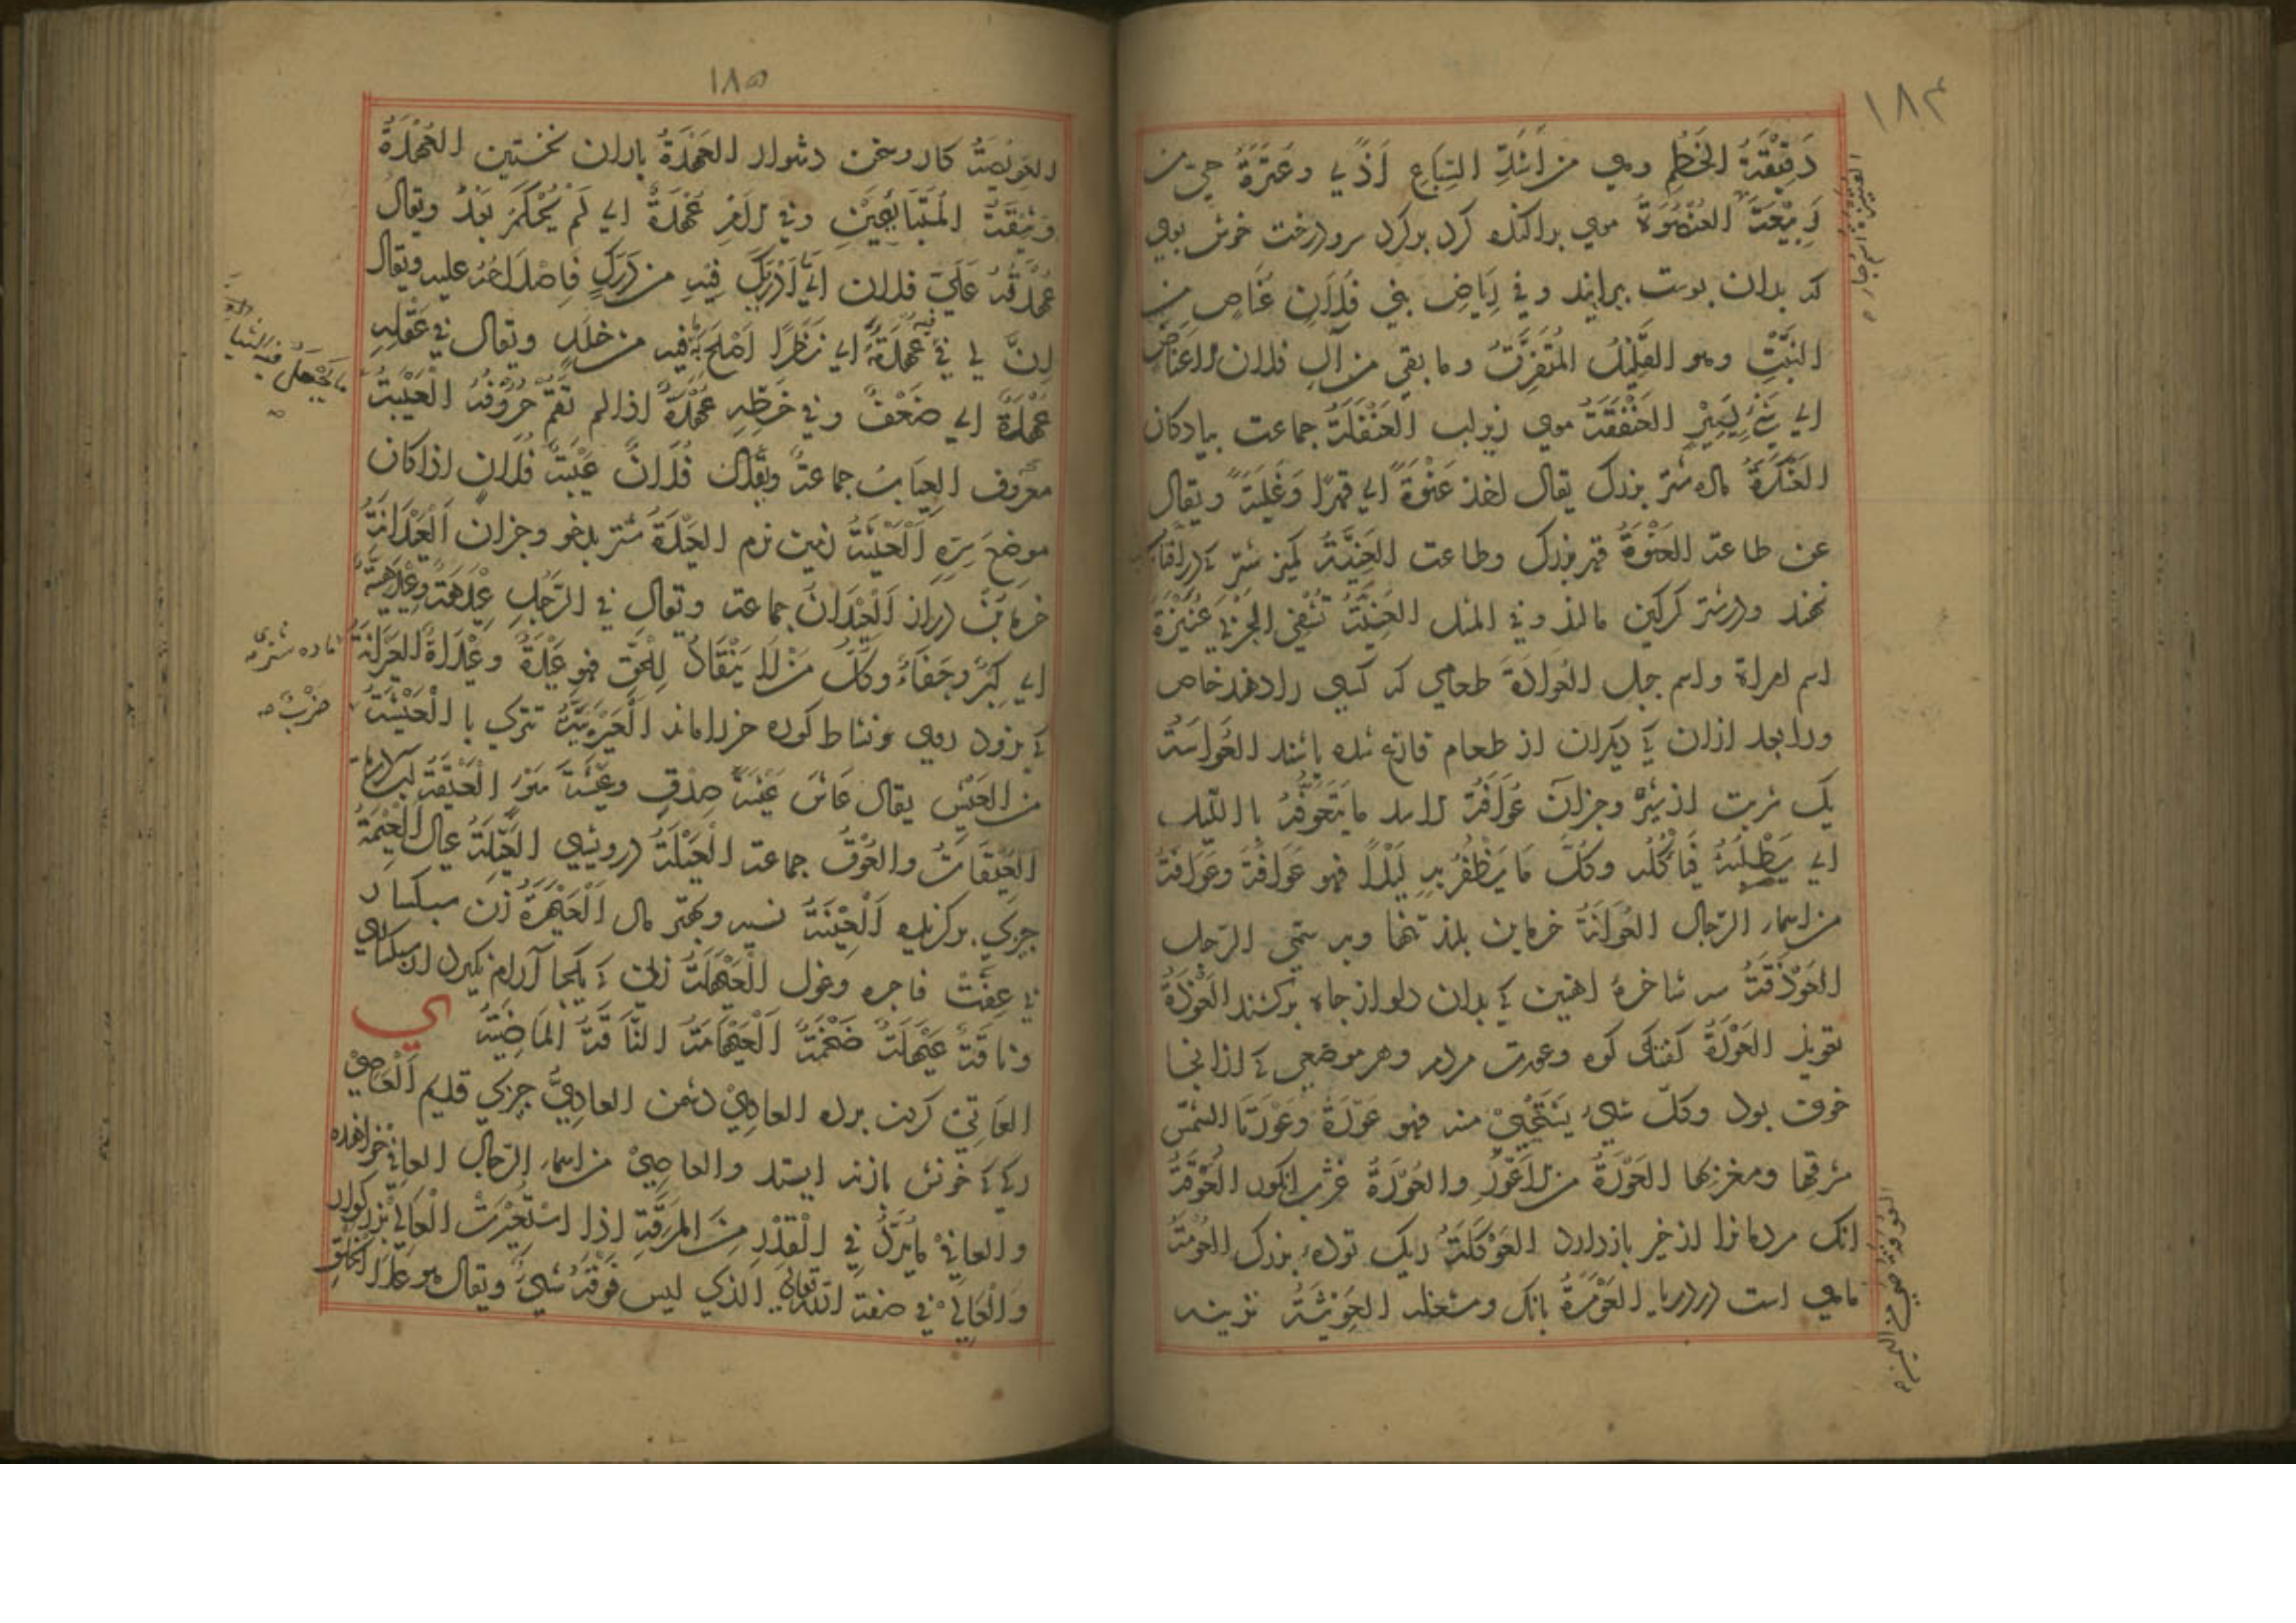 ١٨٤
دَقِيْقَةُ الخَطْمِ وهي من أشدِّ السِّبَاعِ اَذًي وعَنَزَةُ حيّ من
رَبِيْعَةَ العُنْصُوَةُ موي پراكنده كرد بر كرد سر ودرخت خوش بوي
كه بدان پوست پيرايند وفي رِيَاضِ بني فُلَانٍ عَنَاصٍ من
النَّبْتِ وهو القَلِيْلُ المُتَفَرِّقُ وما بقي من مالِ فلان الاعَنَاصٍ
اي شَيْءٌ يَسِيْرٌ العَنْفَقَةُ موي زيرلب العَنْفَلَةُ جماعت پيادكان
العَنَكَرَةُ ماده شتر بزرك يقال اخذ عَنْوَةً اي قهرًا وَغَلَبَةً ويقال
عن طاعة العَنْوَةُ قهر بزرك وطاعت العَنِيَّةُ كميز شتر كه در افتاب
نهند ودر شتر كركين مالند وفي المثل العَنِيَّةُ تَشْفِي الجَرَبَ عُنَيْزَةُ
اسم امراة واسم جبل العُوَادَةُ طعامي كه كسي را دهند خاص
ورا بعد ازان كه ديكران از طعام فارغ شده باشند العُوَاسَةُ
يك شربت از شير وجزان عُوَافَةُ الاسد ما يَتَعَوَّفُهُ باالليل
اي يَطْلُبُهُ فَيَاْكُلُه وكُلُّ مَا يَظْفَرُ بِهِ لَيْلًا فهو عُوَافَةٌ وعُوَافَةُ
من اسماء الرّجال العَوَانَةُ خرماين بلند تنها وبه سمّي الرّجل
العَوْذَقَةُ سه شاخهٔ اهنين كه بدان دلو از چاه بركشند العُوْذَةُ
تعويذ العَوْرَةُ كفتكي كوه وعورت مردم وهر موضعي كه ازانجا
خوف بود وكلّ شيء يُسْتَحْيَيْ منه فهو عَوْرَةٌ وَعَوْرَتَا الشمْسِ
مشرقها ومغربها العَوْرَةُ من الاَعْوَرِ والعُوْرَةُ عوژب انكور العُوَقَةُ
انك مردمانرا از خير بازدارد العَوْكَلَةُ ريك تودهٔ بزرك العُوْمَةُ
ماهي است در دريا العَوْمَرَةُ بانك ومشغله العَوِيْثَةُ تريشه
١٨٥
العَوِيْصَةُ كار وسخن دشوار العَهْدَةُ باران نخستين العُهْدَةُ
وَثِيْقَةُ المُتَبَايِعَيْنِ وفي الامرِ عُهْدَةٌ اي لم يُحْكَمْ بَعْدُ ويقال
عُهْدَتُهُ عَلَيَ فلان اي مَا أُدْرِكَ فِيْهِ من دَرَكٍ فَاِصْلَاحُهُ عليه ويقال
انَّ لي في عُهْدَةً اي نَظَرًا اُصْلِحُ فيه من خلَلِهِ ويقال في عَقْلِهِ
عُهْدَةٌ اي ضَعْفٌ وفي خَطِّهِ عُهْدَةٌ اذا لم تُقَمْ حُرُوْفُهُ العَيْبَةُ
معروف العِيَابُ جماعةٌ ويُقَالُ فُلَانٌ عَيْبَةُ فُلَانٍ اذا كان
موضعَ سِرِّهِ اَلْعَيْثَةُ زمين نرم العَيْدَةُ شتر بدخو وجزان اَلْعَيْدَانَةُ
خرمابن دراز اَلْعَيْدَانُ جماعة ويقال في الرَّجُلِ عَيْدَهَةٌ وعَيْدَهِيَّةٌ
اي كِبْرٌ وجَفَاءٌ وكُلُّ مَنْ لَا يَنْقَادُ لِلحَقِّ فهو عَيْدَهٌ
كه بزود روي ونشاط كوره خر را ماند العَيْرِيَّةُ تنزي با العَيْشَةُ
من العَيْشِ يقال عَاشَ عِيْشَةَ صِدْقٍ وعِيْشَةَ سَوْءٍ العَيْقَةُ لب دريا
العَيْقَاتُ والعُوْقُ جماعة العَيْلَةُ درويشي العَيِّلَةُ عيال العِيْمَةُ
چيزي بركزيده اَلْعِيْنَةُ نسيه وبهتر مال اَلْعَيْهَرَةُ زن سبكسار
بي عفّت فاجره وغول اَلْعَيْهَلَةُ زني كه يكجا آرام نكيرد از سبكساري
وناقَةٌ عَيْهَلَةٌ ضَخْمَةٌ اَلْعَيْهَامَةُ النَّاقَةُ المَاضِيَةُ ي
العَاتِيْ كردن برده العادِيْ دشمن العادِيُّ چيزي قديم اَلْعَاصِيْ
ركي كه خونش بازنه ايستد والعاصِيْ من اسماء الرّجال العافِيْ خواهنده
والعافِيْ مَايُرَدُّ فِي الْقِدْرِ مِنَ المَرَقَةِ اذا اسْتُعِيْرَتْ العَالِيْ بزركوار
وَالْعَالِيْ في صفة الله تعالي الذي ليس فَوْقَهُ شيءٌ ويقال هو عَلَا الخَلْقَ
ما يُجْعَلُ فيه الثياب
ماده شتري
ضرْبٌ